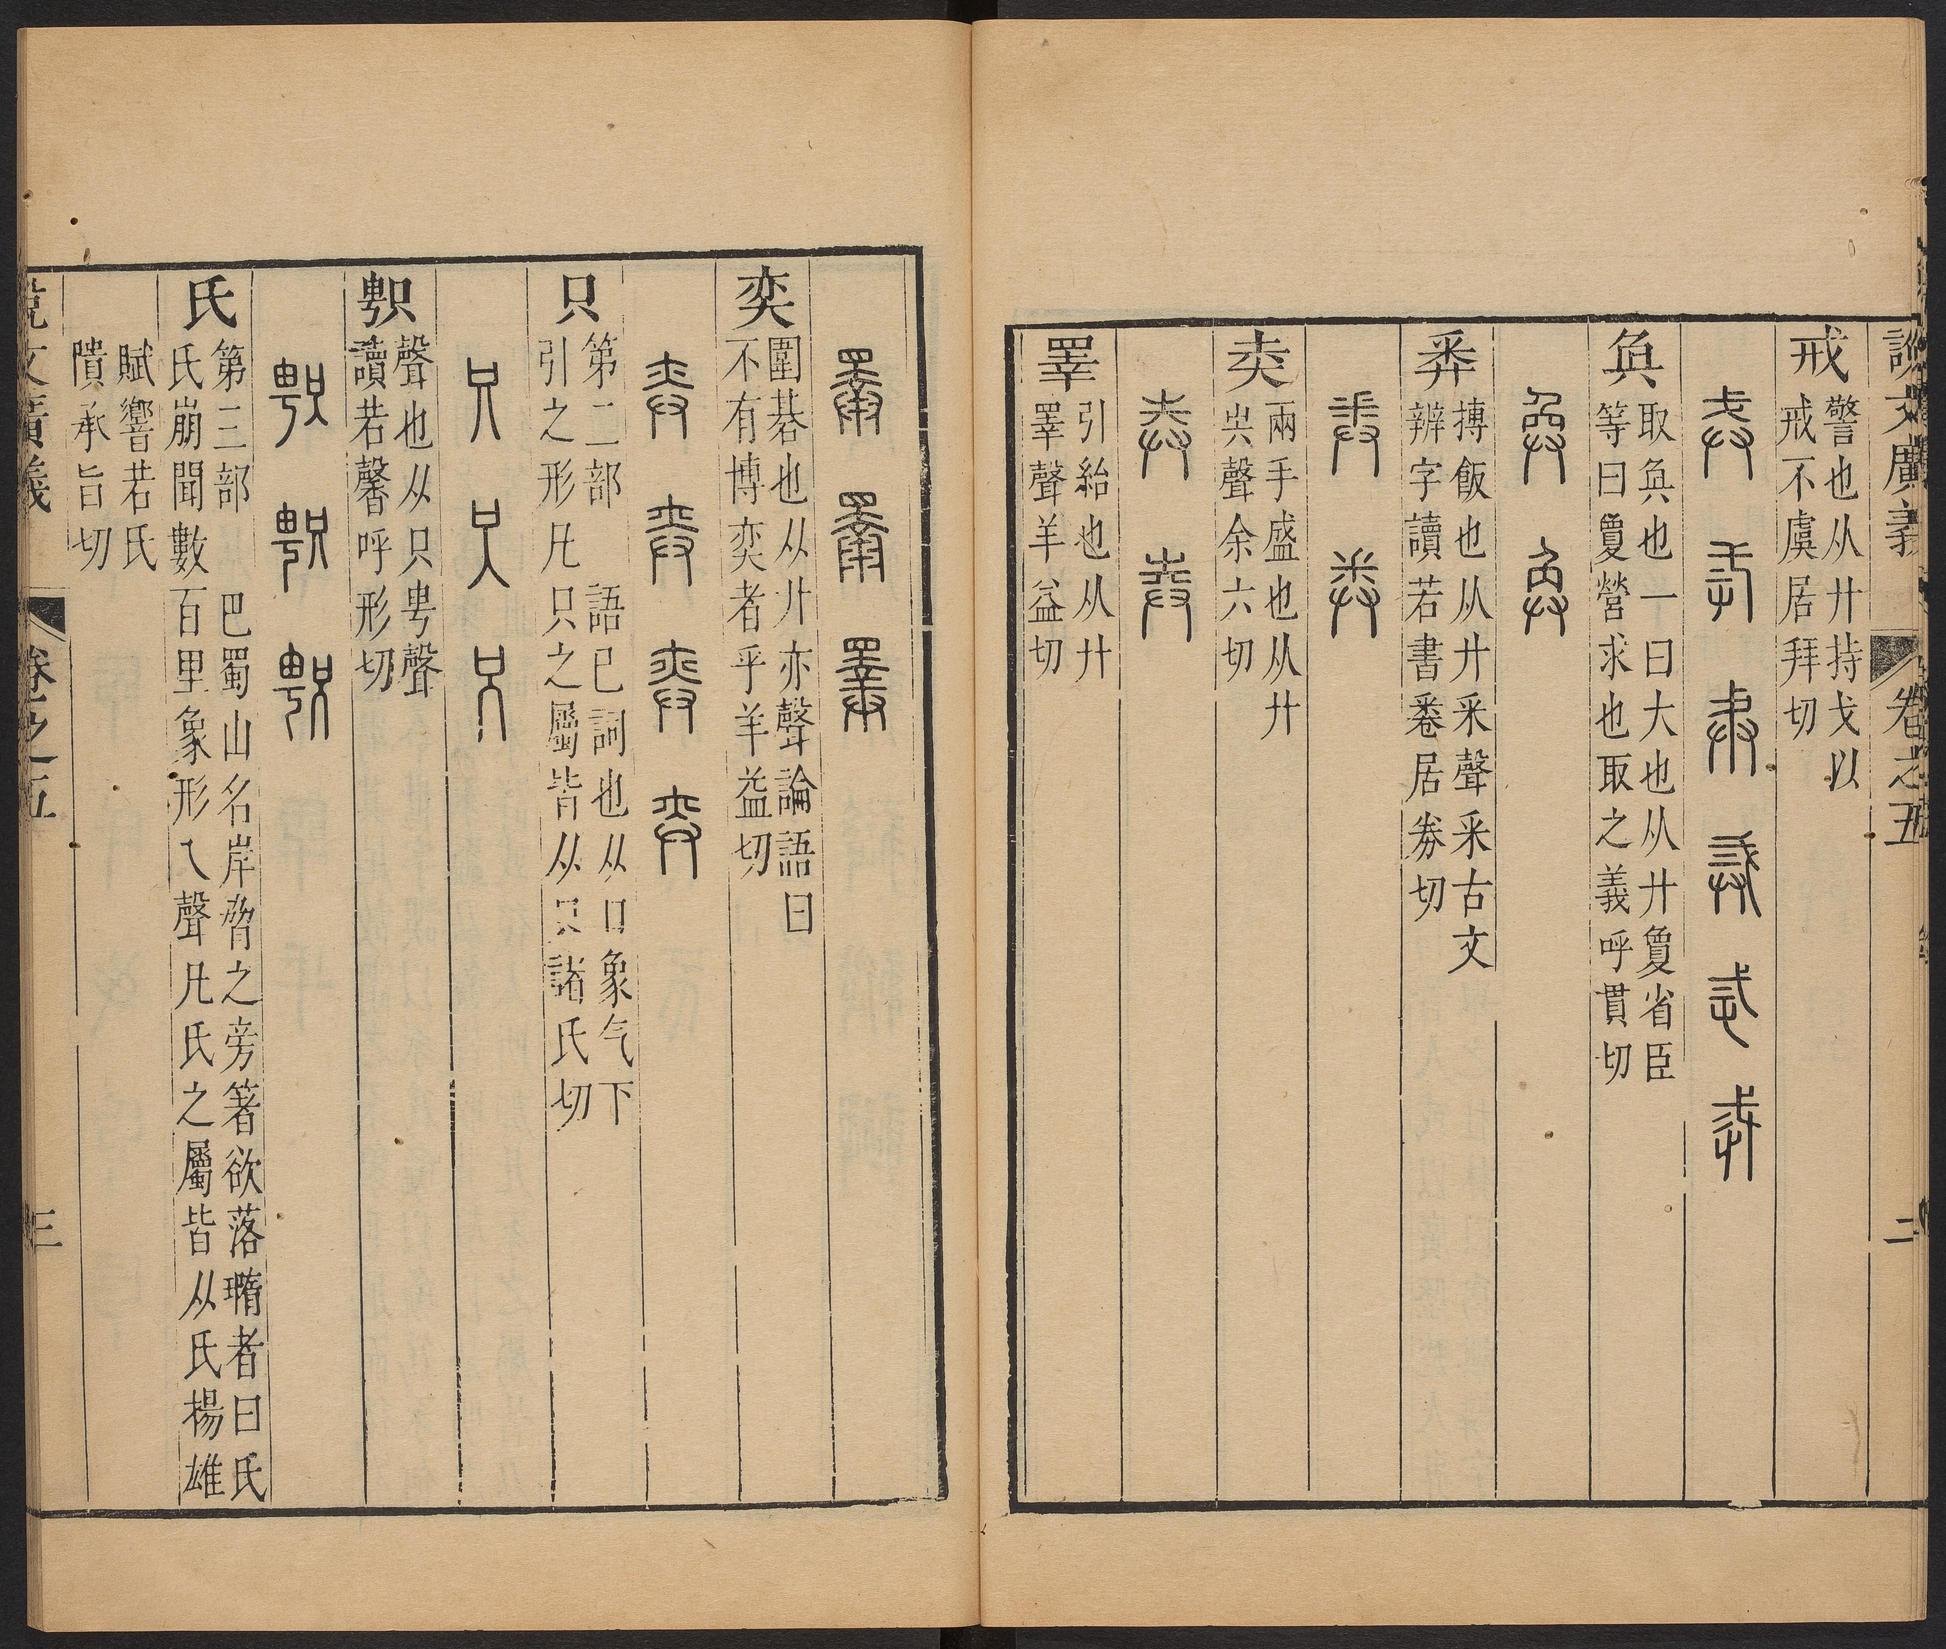 說文廣義
卷之五
二
戒
警也从廾持戈以
戒不虞居拜切
奐
取奐也一曰大也从廾敻省臣
等曰敻營求也取之義呼貫切
𢍏
摶飯也从廾釆聲釆古文
辨字讀若書卷居券切
兩手盛也从廾
𡴆聲余六切
睪
引給也从廾
睪聲羊益切
奕
圍棊也从廾亦聲論語曰
不有博奕者乎羊益切
只
第二部
語巳詞也从口象气下
引之形凡只之屬皆从只諸氏切
𠮡
聲也从只甹聲
讀若馨呼形切
氏
第三部
巴蜀山名岸脅之旁箸欲落𡐦者曰氏
氏崩聞數百里象形乀聲凡氏之屬皆从氏楊雄
賦響若氏
隤承旨切
說文廣義
卷之五
三